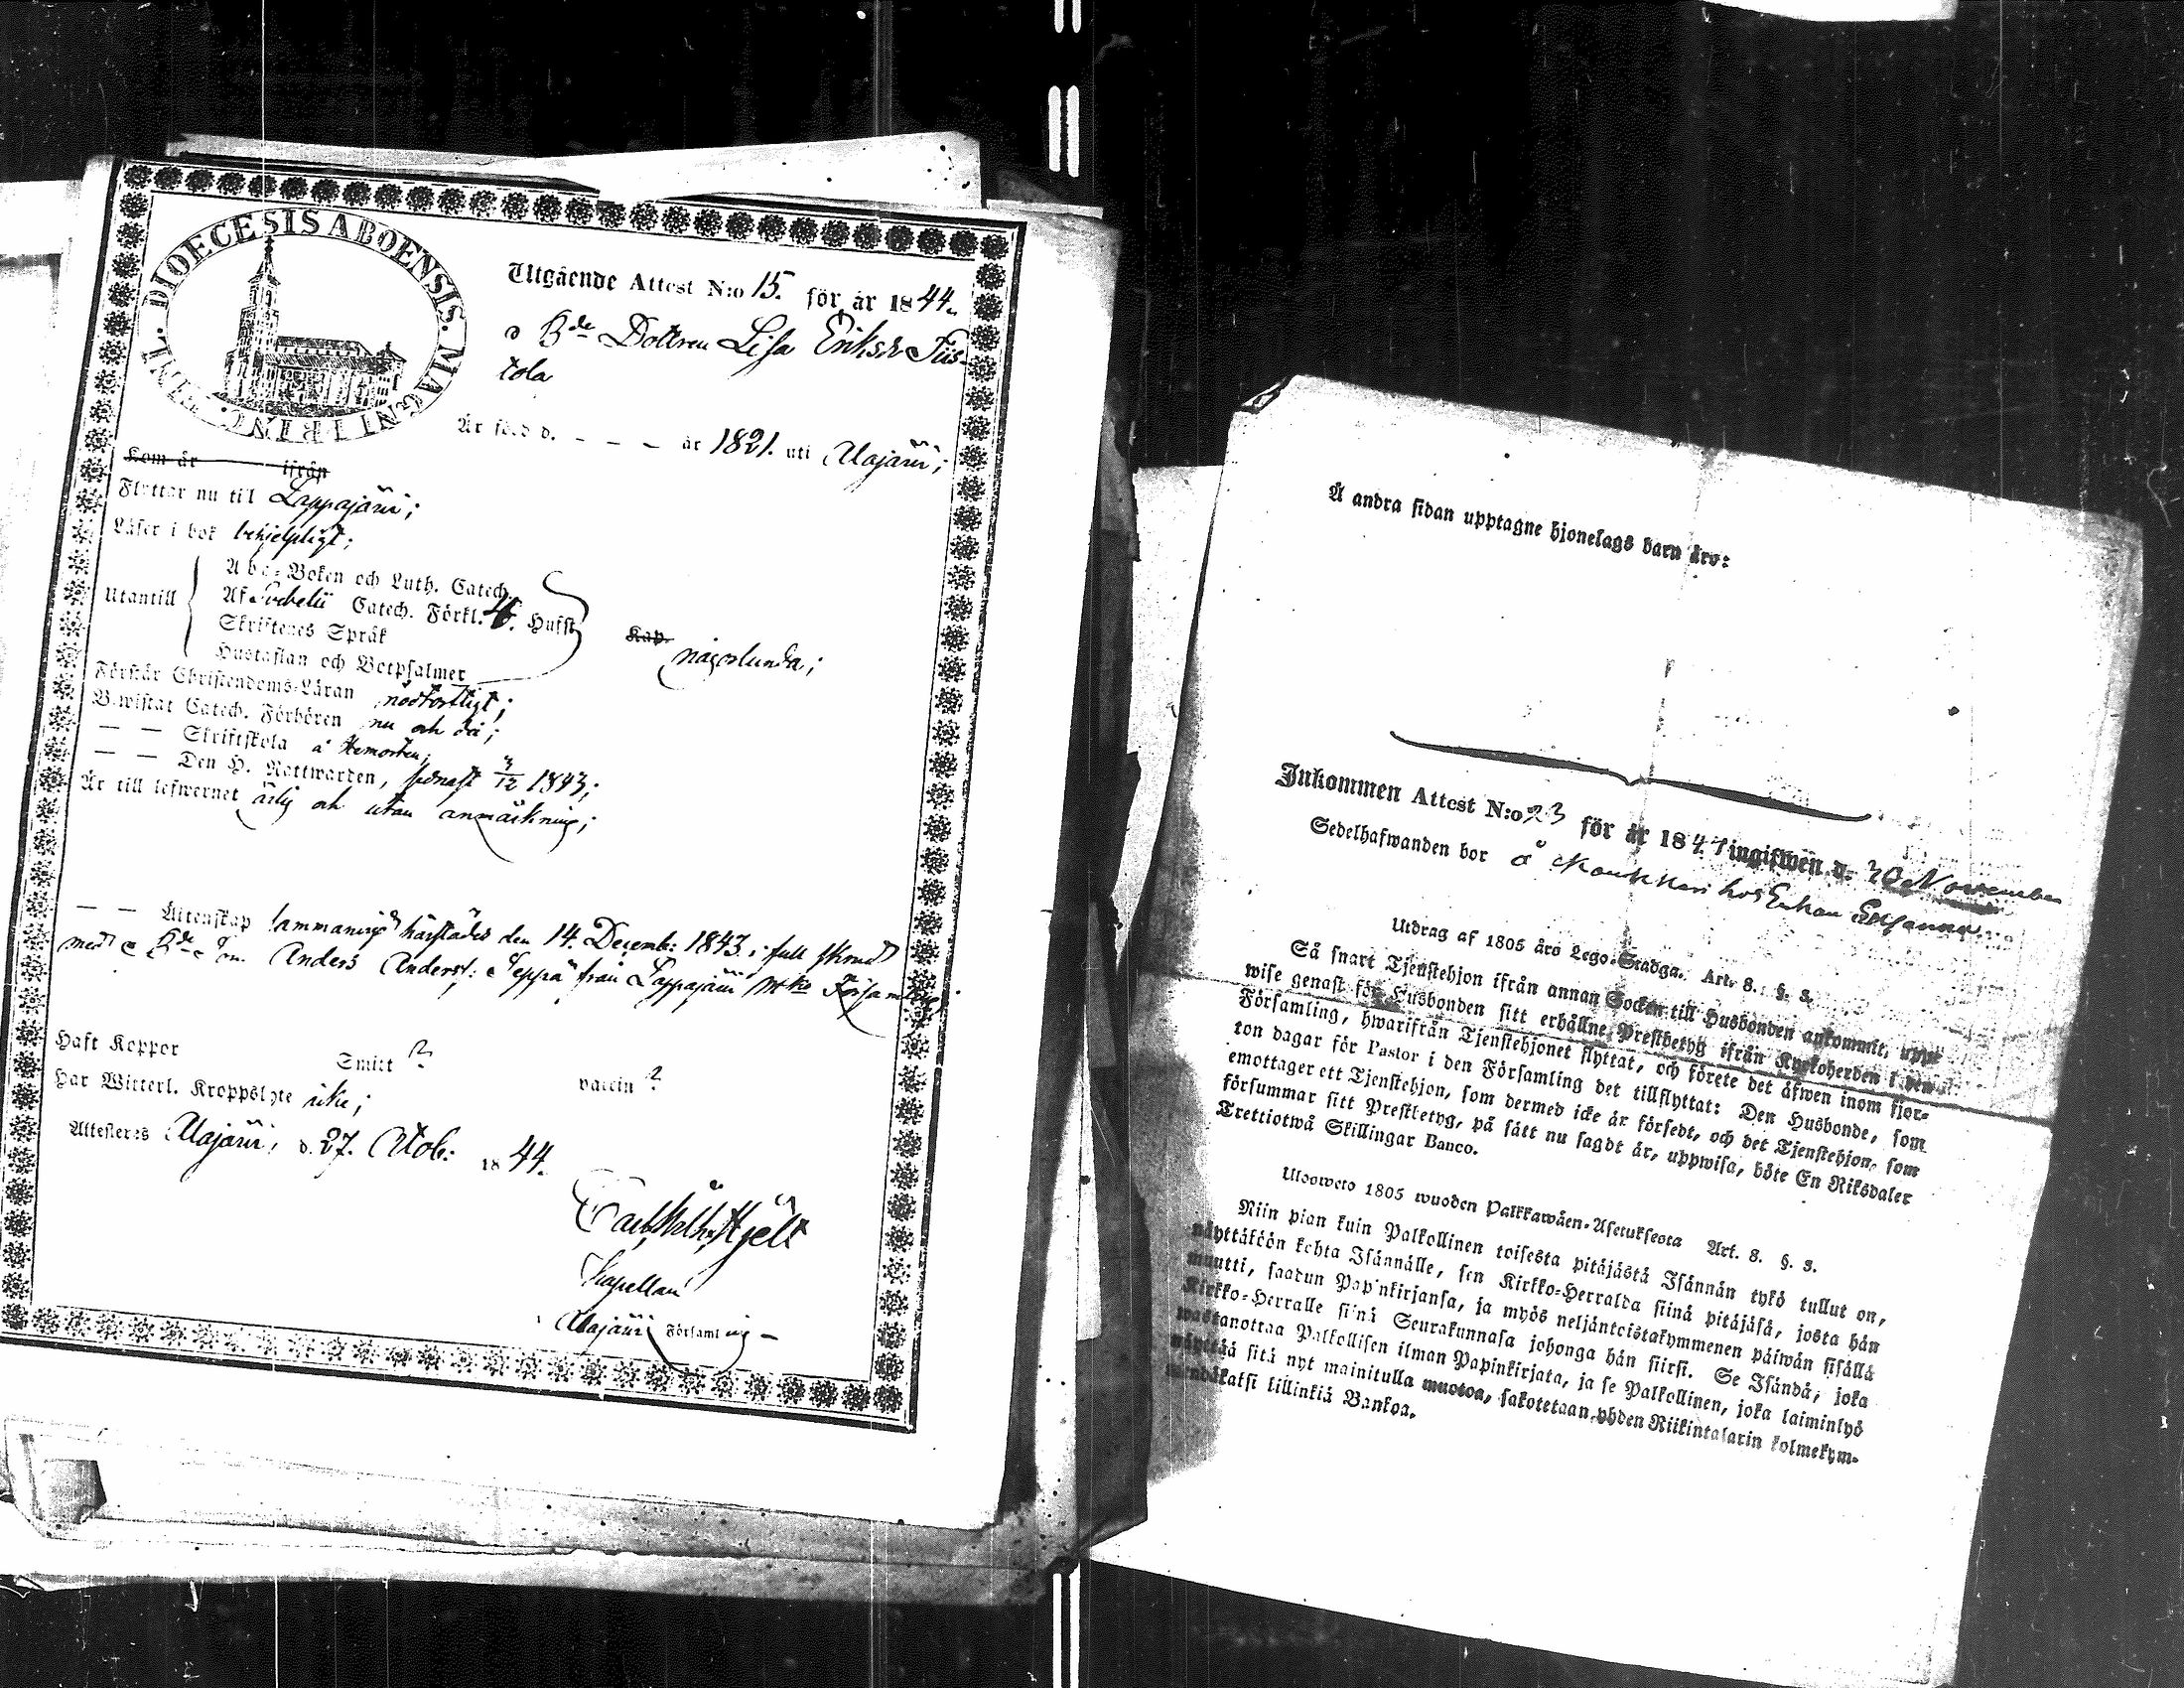 DIOECESIS ABOENSIS. MAGNI PRINC. FINL.
Utgående Attest N:o 15. för år 1844.
Bde Dottren Lisa Eriksdr Tiis-
tola
Är född d. – – – år 1821. uti Alajärvi;
Kom år ifrån
Flyttar nu till Lappajärvi;
Läser i bok behjelpligt;
Utantill
Abc-Boken och Luth. Catech.
Af Svebelii Catech. Förkl. 4. Hufst.
Skriftenes Språk
Hustaflan och Botpsalmer
Kap. någorlunda;
Förstår Christendoms-Läran nödtorftligt;
Bewistat Catech. Förhören nu och då;
— — Skriftskola å Hemorten;
— — Den H. Nattwarden, senast 3/12 1843;
Är till lefwernet ärlig och utan anmärkning;
— — Äktenskap sammanvigd härstädes den 14. Decemb: 1843. i full skrud
med Bde Anders Anderss: Seppä från Lappajärvi Församling;
Haft Koppor Smitt ? vaccin ?
Har Witterl. Kroppslyte icke;
Attesteres Alajärvi, d. 27. Octob: 1844.
Carl Wilh. Hjelt
Kapellan
Alajärvi Församling –
Å andra sidan upptagne hjonelags barn äro:
Inkommen Attest N:o 23 för år 1844 ingifwen d. 20 November
Sedelhafwanden bor å hos Enkan
Utdrag af 1805 års Lego-Stadga. Art. 8. §. 3.
Så snart Tjenstehjon ifrån annan Socken till Husbonden ankommit, upp-
wise genast för Husbonden sitt erhållne Prestbetyg ifrån Kyrkoherden i den
Församling, hwarifrån Tjenstehjonet flyttat, och förete det äfwen inom fjor-
ton dagar för Pastor i den Församling det tillflyttat: Den Husbonde, som
emottager ett Tjenstehjon, som dermed icke är försedt, och det Tjenstehjon, som
försummar sitt Prestbetyg, på sätt nu sagdt är, uppwisa, böte En Riksdaler
Trettiotwå Skillingar Banco.
Ulosweto 1805 wuoden Palkkawäen-Asetuksesta Art. 8. §. 3.
Niin pian kuin Palkollinen toisesta pitäjästä Isännän tykö tullut on,
näyttäköön kohta Isännälle, sen Kirkko-Herralda siinä pitäjäsä, josta hän
muutti, saadun Papinkirjansa, ja myös neljäntoistakymmenen päiwän sisällä
Kirkko-Herralle siinä Seurakunnasa johonga hän siirsi. Se Isändä, joka
wastanottaa Palkollisen ilman Papinkirjata, ja se Palkollinen, joka laiminlyö
näyttää sitä nyt mainitulla muotoa, sakotetaan yhden Riikintalarin kolmekym-
mendäkaksi killinkiä Bankoa.